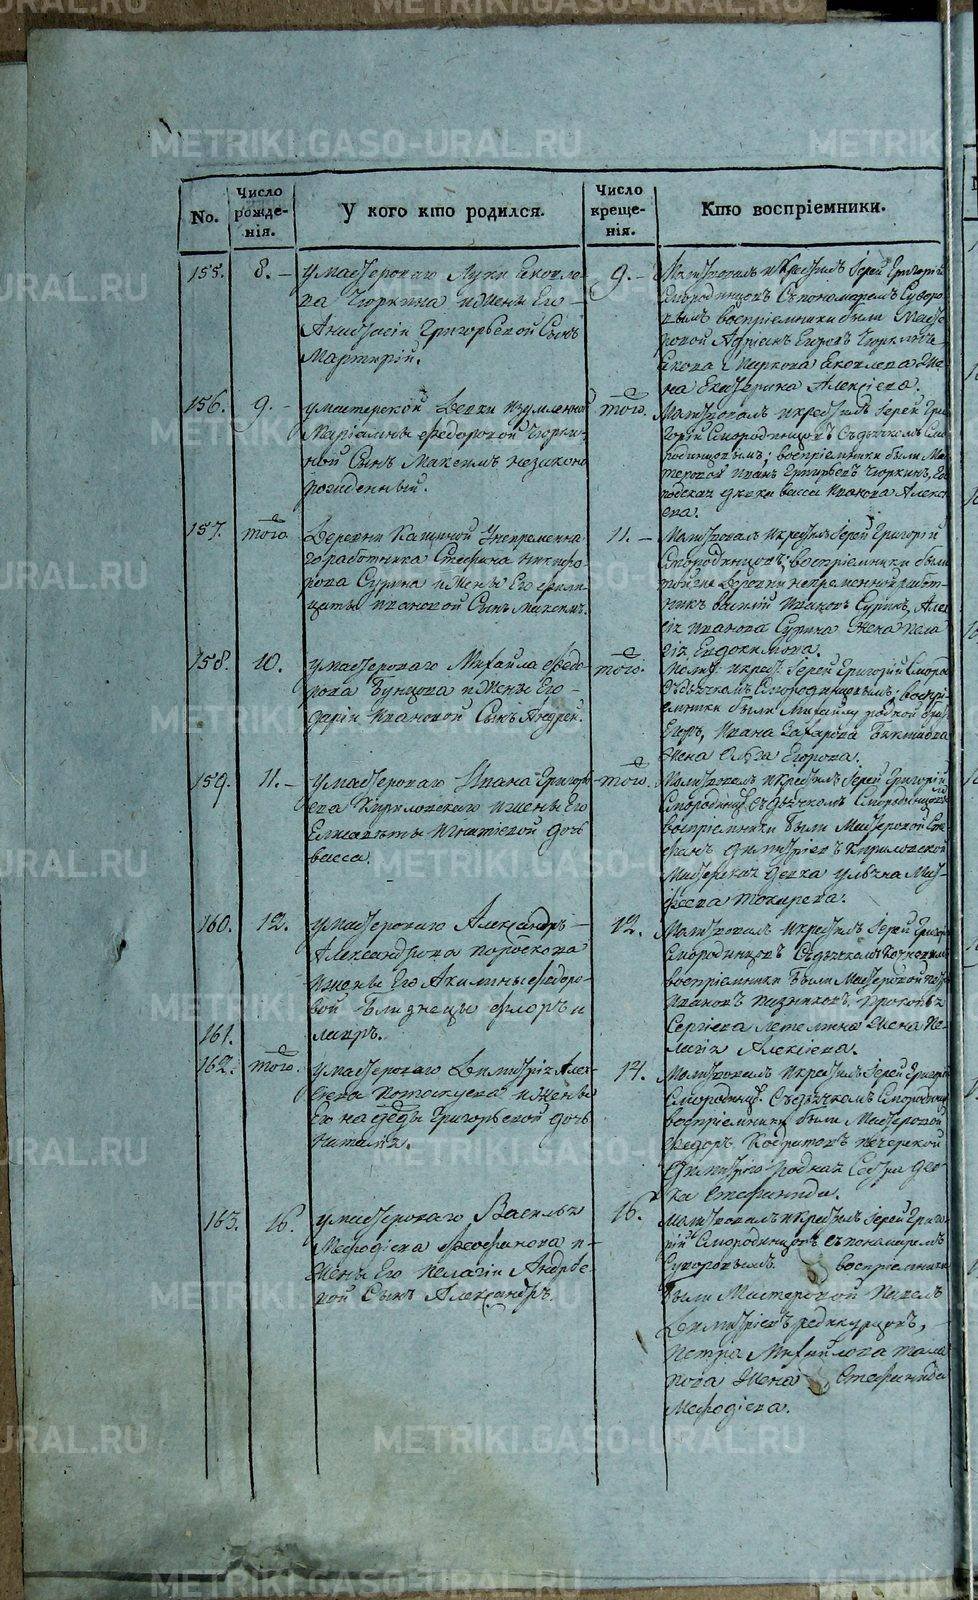 No.
Число рожденія.
У кого кто родился.
Число крещенія.
Кто воспріемники.
155.
8.
У мастероваго Луки Яковле-
ва Тюркина и жены Его
Анастасіи Григорьевой Сынъ
Мартирій.
9.
Молитвовалъ и Крестилъ Іерей Григорій
Смородинцовъ Съ пономаремъ Суворо-
вымъ воспріемники были Масте-
ровой Адріанъ Егоровъ
Яковлева Же-
на Екатерина Алексіева.
156.
9.
У мастерской Девки
Маріамны Федоровой Тюрки-
ной Сынъ Максимъ незаконо
рожденный.
того.
Молитвовалъ и крестилъ Іерей Гри-
горій Смородинцовъ Съ дьячкомъ Смо-
родинцовымъ; воспріемники были Мас-
теровой Иванъ Григорьевъ Тюркинъ,
девка васса Иванова Алексі-
ева.
157.
того
Деревни Кашиной Унепременна-
го работника Стефана Никифо-
рова Сурина и жены Его Фели-
цаты Ивановой Сынъ Максимъ.
11.
Молитвовалъ и крестилъ Іерей Григорій
Смородинцовъ; воспріемники были
той же Деревни непременной работ-
никъ василій Ивановъ Суринъ, Алек-
сія Иванова Сурина Жена Пела-
гія Евдокимова.
158.
10.
У мастероваго Михаила Федо-
рова Бунцова и жены Его
Даріи Ивановой Сынъ Андрей.
того.
Молит: и крест: Іерей Григорій Смород.
Съ дьячкомъ Смородинцовымъ; воспрі-
емники были Михайлу родной братъ
Егоръ, Ивана Захарова
Жена Ольга Егорова.
159.
11.
У мастероваго Ивана Григорь-
ева Кириловскаго и жены Его
Елисаветы Игнатіевой дочь
васса.
того.
Молитвовалъ и крестилъ Іерей Григорій
Смородинц: Съ дьячкомъ Смородинцовымъ
воспріемники были Мастеровой Сте-
фанъ Димитріевъ Кириловской
Мастерская девка Ульяна Мат-
феева Токарева.
160.
12.
У мастероваго Александра
Александрова
и жены Его Акилины Федоро-
вой Близнецы Флоръ и
161.
лавръ.
12.
Молитвовалъ и крестилъ Іерей Григор
Смородинцовъ Съ дьячкомъ
воспріемники были Мастеровой
Ивановъ Пизниковъ, Прокопья
Сергіева Летемина Жена Пе-
лагія Алексіева.
162.
того.
У мастероваго Димитрія Алек-
сіева Потаскуева и жены
Его надежды Григорьевой дочь
Наталія.
14.
Молитвовалъ и крестилъ Іерей Григорій
Смородинц: Съ дьячкомъ Смородинц
воспріемники были Мастеровой
Федоръ Кондратовъ Печерской
Димитріо родная Сестра дев-
ка Стефанида.
163.
16.
У мастероваго Василья
Мефодіева Феофанова и
жены Его Пелагіи Андрее-
вой Сынъ Александръ.
16.
Молитвовалъ и крестилъ Іерей Григо-
рій Смородинцовъ съ пономаремъ
Суворовымъ воспріемники
были Мастеровой Павелъ
Димитріевъ Редикурцовъ,
Петра Михайлова
Жена Стефанида
Мефодіева.
METRIKI.GASO-URAL.RU